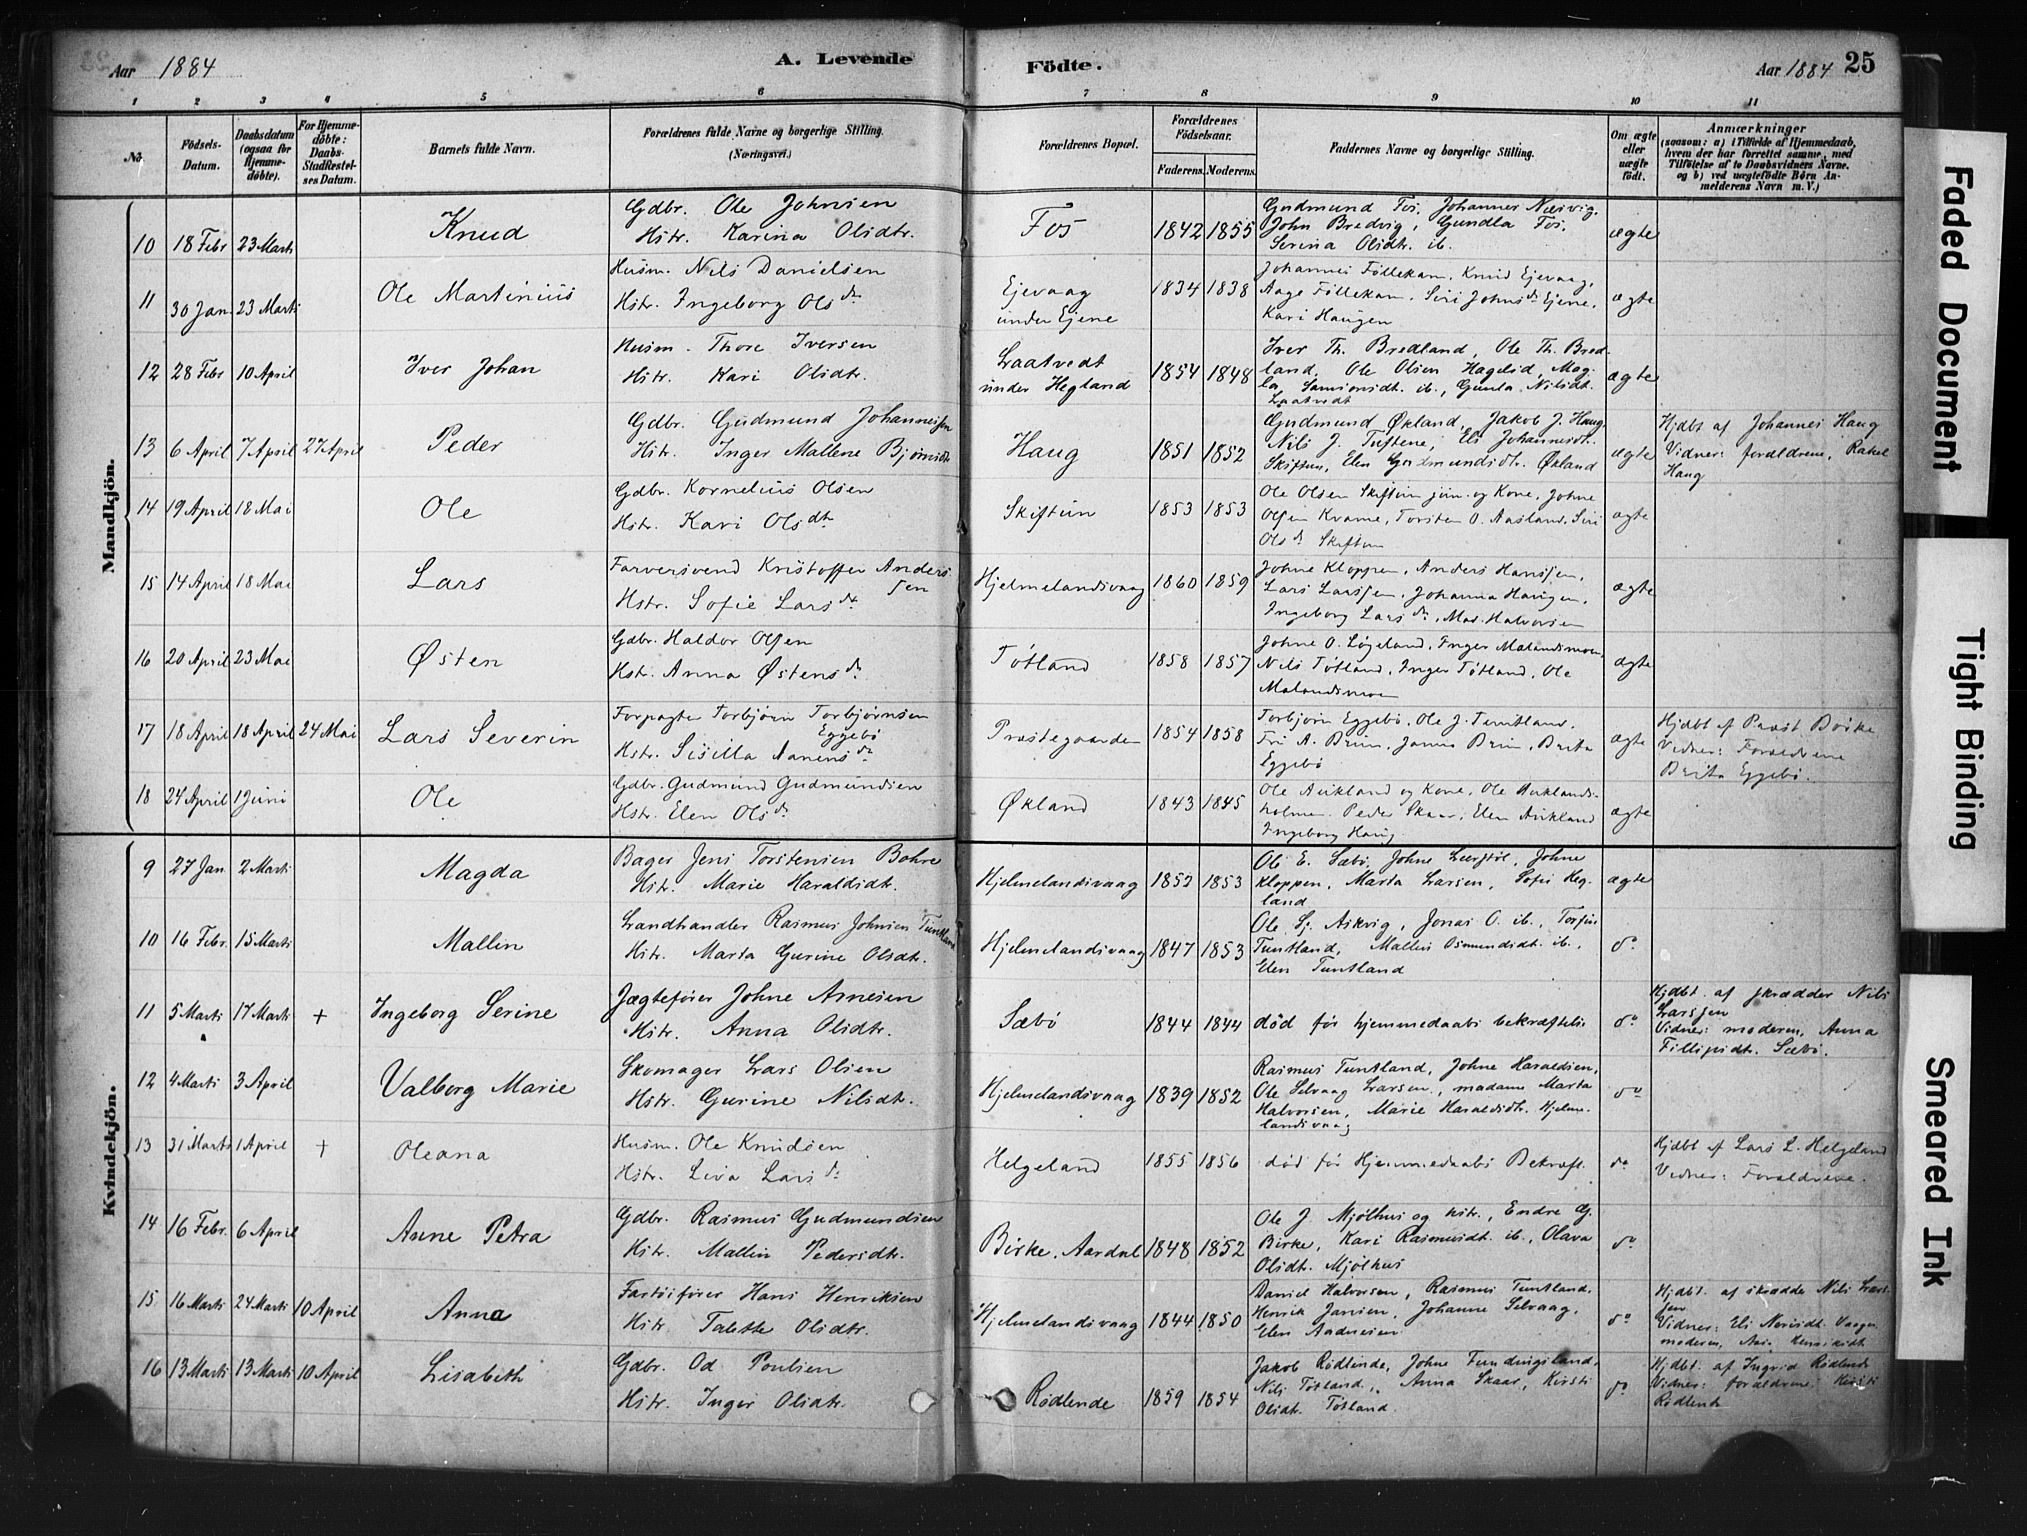 Aar 1884
A. Levende Födte.
Aar 1884 25
1 2 3 4 5 6 7 8 9 10 11
No.
Födsels-Datum.
Daabsdatum (ogsaa for Hjemme-döbte).
For Hjemme-döbte: Daabs-Stadfæstel-ses Datum.
Barnets fulde Navn.
Forældrenes fulde Navne og borgerlige Stilling. (Næringsvei.)
Forældrenes Bopæl.
Forældrenes Födselsaar.
Faderens. Moderens.
Faddernes Navne og borgerlige Stilling.
Om ægte eller uægte födt.
Anmærkninger
(saasom: a) i Tilfælde af Hjemmedaab, hvem der har forrettet samme, med Tilföielse af to Daabsvidners Navne. og b) ved uægtefödte Börn An-melderens Navn m. V.)
Mandkjön.
10 18 Febr 23 Marts Knud
Gdbr. Ole Johnsen
Hstr. Karina Olsdtr.
Fos 1842 1855
Gudmund Fos, Johannes Næsvig,
John Bredvig, Gundla Fos,
Serina Olsdtr. ib.
ægte
11 30 Jan 23 Marts Ole Martinius
Husm. Nils Danielsen
Hstr. Ingeborg Olsdr
Ejevaag
under Ejene
1834 1838
Johannes Føllekam, Knud Ejevaag,
Aage Føllekam, Siri Johnsdr Ejene,
Kari Haugen
ægte
12 28 Febr 10 April Iver Johan
Husm. Thore Iversen
Hstr. Kari Olsdtr.
Laatvedt
under Hegland
1854 1848
Iver Th. Bredland, Ole Th. Bred-
land, Ole Olsen Hagelid, Mag-
la Samsonsdt. ib., Gunla Nilsdt.
Laatvedt
ægte
13 6 April 7 April 27 April Peder
Gdbr. Gudmund Johannessen
Hstr. Inger Mallene Bjørnsdtr
Haug 1851 1852
Gudmund Økland, Jakob J. Haug
Nils J. Tuftene, Eli Johannesdt.
Skiftun, Elen Gudmundsdtr. Økland
ægte
Hjdbt af Johannes Haug
Vidner: forældrene, Rakel
Haug
14 19 April 18 Mai Ole
Gdbr. Kornelius Olsen
Hstr. Kari Olsdtr
Skiftun 1853 1853
Ole Olsen Skiftun jun. og Kone, Johne
Olsen Kvame, Torsten O. Aasland, Siri
Olsdr Skiftun
ægte
15 14 April 18 Mai Lars
Farversvend Kristoffer Anders
sen
Hstr. Sofie Larsdtr
Hjelmelandsvaag 1860 1859
Johne Kloppen, Anders Hanssen,
Lars Larssen, Johanna Haugen,
Ingeborg Larsdr, Mad. Halvorsen
ægte
16 20 April 23 Mai Østen
Gdbr. Haldor Olsen
Hstr. Anna Østensdr
Tøtland 1858 1857
Johne O. Løjeland, Inger Malandsmoen,
Nils Tøtland, Inger Tøtland, Ole
Malandsmoen
ægte
17 18 April 18 April 24 Mai Lars Severin
Forpagter Torbjørn Torbjørnsen
Eggebø
Hstr. Sisilla Aanensdr
Præstegaarden 1854 1858
Torbjørn Eggebø, Ole J. Tuntland,
Tri A. Brim, Janna Brim, Brita
Eggebø
ægte
Hjdbt af Præst Børke
Vidner: Forældrene
Brita Eggebø.
18 24 April 1 Juni Ole
Gdbr. Gudmund Gudmundsen
Hstr. Elen Olsdr
Økland 1843 1845
Ole Aukland og Kone, Ole Auklands-
holmen, Peder Skaar, Elen Aukland
Ingeborg Haug.
ægte
Kvindekjön.
9 27 Jan 2 Marts Magda
Bager Jens Torstensen Bohre
Hstr. Marie Haraldsdtr.
Hjelmelandsvaag 1852 1853
Ole E. Sæbø, Johne
Kloppen, Marta Larsen, Sofie Heg-
land
ægte
10 16 Febr. 15 Marts Mallin
Landhandler Rasmus Johnsen Tuntland
Hstr. Marta Gurine Olsdtr.
Hjelmelandsvaag 1847 1853
Ole Sj. Askvig, Jonas O. ib., Torfin
Tuntland, Mallin Osmundsdt. ib.,
Elen Tuntland
do
11 5 Marts 17 Marts + Ingeborg Serine
Jægtefører Johne Arnesen
Hstr. Anna Olsdtr.
Sæbø 1844 1844 død før hjemmedaabs bekræftelse do
Hjdbt. af skrædder Nils
Larssen
Vidner: moderen, Anna
Fillipsdtr. Sæbø.
12 4 Marts 3 April Valborg Marie
Skomager Lars Olsen
Hstr. Gurine Nilsdt.
Hjelmelandsvaag 1839 1852
Rasmus Tuntland, Johne Haraldsen,
Ole Selvaag Larsen, madame Marta
Halvorsen, Marie Haraldsdt. Hjelme-
landsvaag
do
13 31 Marts 1 April + Oleana
Husm. Ole Knudsen
Hstr. Liva Larsdr
Helgeland 1855 1856 død før Hjemmedaabs Bekræft. do
Hjdbt af Lars L. Helgeland
Vidner: Forældrene.
14 16 Febr. 6 April Anne Petra
Gdbr. Rasmus Gudmundsen
Hstr. Mallin Pedersdtr.
Birke, Aardal 1848 1852
Ole J. Mjølhus og hstr., Endre G.
Birke, Kari Rasmusdt. ib., Olava
Olsdt. Mjølhus
do
15 16 Marts 24 Marts 10 April Anna
Fartøifører Hans Henriksen
Hstr. Talette Olsdtr.
Hjelmelandsvaag 1844 1850
Daniel Halvorsen, Rasmus Tuntland,
Henrik Jansen, Johanne Selvaag,
Elen Aadnesen
do
Hjdbt. af skrædder Nils Lars-
sen
Vidner: Eli Vaagen
moderen, Henriksdt.
16 13 Marts 13 Marts 10 April Lisabeth
Gdbr. Od Poulsen
Hstr. Inger Olsdtr.
Rødlende 1859 1854
Jakob Rødlende, Johne Fundingsland,
Nils Tøtland, Anna Skaar, Kirsti
Olsdt. Tøtland.
do
Hjdbt. af Ingrid Rødlende
Vidner: forældrene, Kirsti
Rødlende
Faded Document
Tight Binding
Smeared Ink